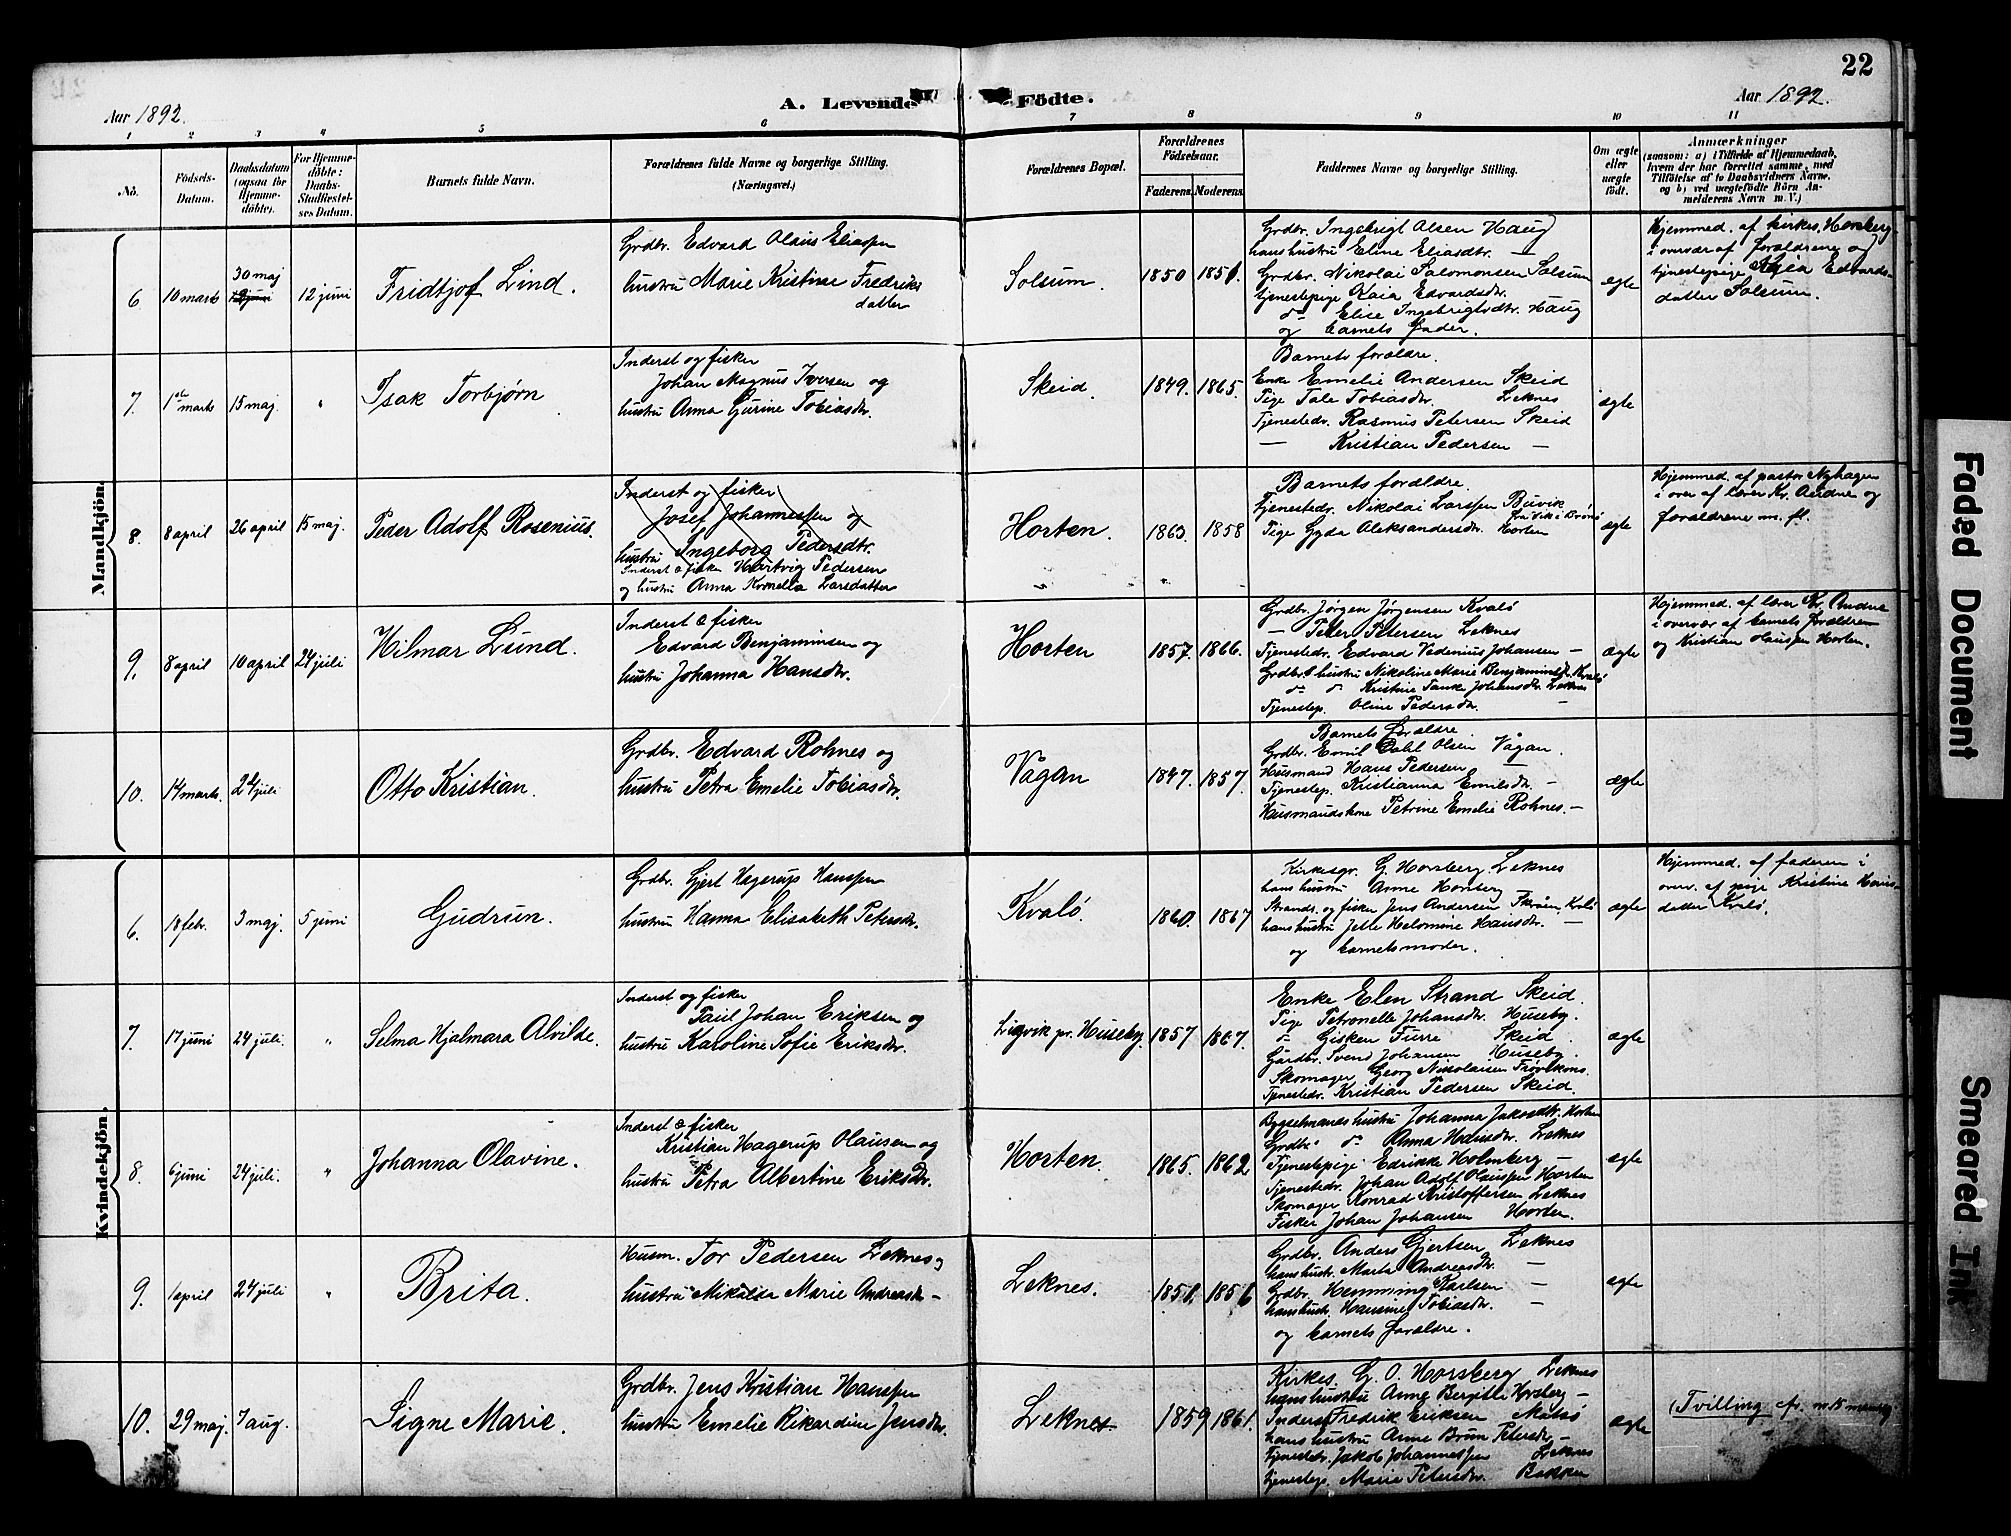 22
Aar 1892.
A. Levende Födte.
Aar 1892.
1 2 3 4 5 6 7 8 9 10 11
No.
Födsels-
Datum.
Daabsdatum
(ogsaa for
Hjemme-
döbte).
For Hjemme-
döbte:
Daabs-
Stadfæstel-
ses Datum.
Barnets fulde Navn.
Forældrenes fulde Navne og borgerlige Stilling.
(Næringsvei.)
Forældrenes Bopæl.
Forældrenes
Födselsaar.
Faderens. Moderens.
Faddernes Navne og borgerlige Stilling.
Om ægte
eller
uægte
födt.
Anmærkninger
(saasom: a) i Tilfælde af Hjemmedaab,
hvem der har forrettet samme, med
Tilföielse af to Daabsvidners Navne,
og b) ved uægtefödte Börn An-
melderens Navn m. V.)
Mandkjön.
6
10 marts
30 maj
12 juni
12 juni
Fridtjof Lind.
Grdbr. Edvard Olaus Eliassen
hustru Marie Kristine Fredriks
datter
Solsum.
1850 1851.
Grdbr. Ingebrigt Olsen Haug
hans hustru Eline Eliasdtr. —
Grdbr. Nikolai Salomonsen Solsum
tjenestepige Kaia Edvardsdtr.
do Elise Ingebrigtsdtr. Haug
og barnets fader.
ægte
Hjemmed. af kirkes. Horsberg
i overvær af forældrene og
tjenestepige Kaia Edvards-
datter Solsum.
7.
1ste marts
15 maj.
"
Isak Torbjørn
Inderst og fisker
Johan Magnus Iversen og
hustru Anna Gurine Tobiasdtr.
Skeid.
1849. 1865.
Barnets forældre.
Enke Emelie Andersen Skeid
Pige Tale Tobiasdtr. Leknes
Tjenestedr. Rasmus Petersen Skeid
— Kristian Pedersen —
ægte
8.
8 april
26 april
15 maj.
Peder Adolf Rosenius.
Inderst og fisker
Josef Johannessen og
hustru Ingeborg Pedersdtr.
Inderst & fisker Hartvig Pedersen
og hustru Anna Kornelia Larsdatter
Horten.
" "
1863. 1858
Barnets forældre.
Tjenestedr. Nikolai Larssen Buvik
Pige Gyda Aleksandersdtr. Horten
ægte
Hjemmed. af pastor Nyhagen
i over af lærer Kr. Andne og
forældrene m. fl.
9.
8 april
10 april
24 juli
Hilmar Lund.
Inderst & fisker
Edvard Benjaminsen og
hustru Johanna Hansdtr.
Horten
1857. 1866.
Grdbr. Jørgen Jørgensen Kvalø
— Peder Petersen Leknes
Tjenestedr. Edvard Vedenius Johansen —
Grdbr. hustru Nikoline Marie Benjaminsdtr. Kvalø
do do Kristine Tanke Johansdtr. Leknes
Tjenestep. Oline Pedersdtr. —
ægte
Hjemmed. af lærer Kr. Andne
i overvær af barnets forældren
og Kristian Olaussen Horten.
10.
14 marts.
24 juli
Otto Kristian.
Grdbr. Edvard Rohnes og
hustru Petra Emelie Tobiasdtr.
Vågan
1847. 1857.
Barnets forældre.
Grdbr. Emil Dahl Olsen Vågan.
Husmand Hans Pedersen —
Tjenestep. Kristianna Emilsdtr —
Husmandskone Petrine Emelie Rohnes. —
ægte
Kvindekjön.
6.
18 febr.
3 maj.
5 juni
Gudrun.
Grdbr. Gjert Hagerup Hanssen
hustru Hanna Elisabeth Petersdtr.
Kvalö.
1860. 1867
Kirkesgr. G. Horsberg Leknes
hans hustru Anne Horsberg —
Strands. og fisker Jens Andersen Kvalö
hans hustru Jelle Helomine Hansdtr. —
og barnets moder.
ægte
Hjemmed. af faderen i
overv. af pige Kristine Hans-
datter Kvalö.
7.
17 juni
24 juli.
"
Selma Hjalmara Alvilde.
Inderst og fisker
Paul Johan Eriksen og
hustru Karoline Sofie Eriksdtr.
Ligvik pr. Huseby.
1857 1867.
Enke Elen Strand Skeid.
Pige Petronelle Johansdtr. Huseby.
do Gisken Furre Skeid.
Gårdbr. Svend Johansen Huseby.
Skomager Georg Nikolaisen
Tjenestedr. Kristian Pedersen Skeid.
ægte
8.
6 juni
24 juli.
"
Johanna Olavine.
Inderst & fisker
Kristian Hagerup Olausen og
hustru Petra Albertine Eriksdtr.
Horten.
1865. 1862
Bygselmands hustru Johanna Jakobsdtr. Horten
Grdbr. do Anna Hansdtr. Leknes
Tjenestepige Edrikke Holmberg —
Tjenestedr. Johan Adolf Olaussen Horten
Skomager Konrad Kristoffersen Leknes
Fisker Johan Johansen Horten.
ægte
9.
1 april
24 juli
"
Brita.
Husm. Tor Pedersen Leknes og
hustru Mikalda Marie Andreasdtr —
Leknes.
1851. 1856
Grdbr. Anders Gjertsen Leknes
hans hustr. Marta Andreasdtr. —
Grdbr. Hemming Karlsen —
hans hustr. Hansine Tobiasdtr. —
og barnets forældre.
ægte
10.
29 maj.
7 aug.
Signe Marie.
Grdbr. Jens Kristian Hanssen
hustru Emelie Rikardine Jensdtr.
Leknes
1859 1861.
Kirkes. G. O. Horsberg Leknes
hans hustru Anne Bergitte Horsberg —
Inderst Fredrik Eriksen
hans hustru Anne Brun Petersdtr —
Tjenestedr. Jakob Johannessen Leknes
tjenestepige. Marie Petersdtr. Bakken
ægte
(Tvilling
Faded Document
Smeared Ink